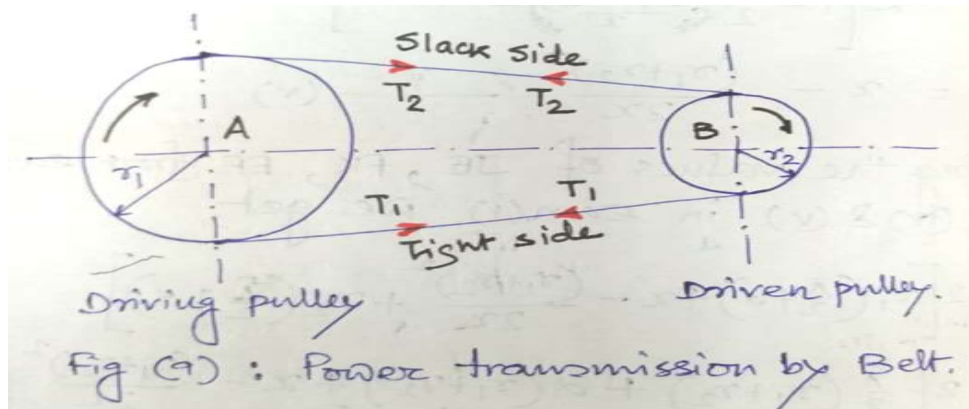 Slack side
T2 T2
A
B
r1
r2
T1 T1
Tight side
Driving pulley
Driven pulley.
Fig (9) : Power transmission by Belt.